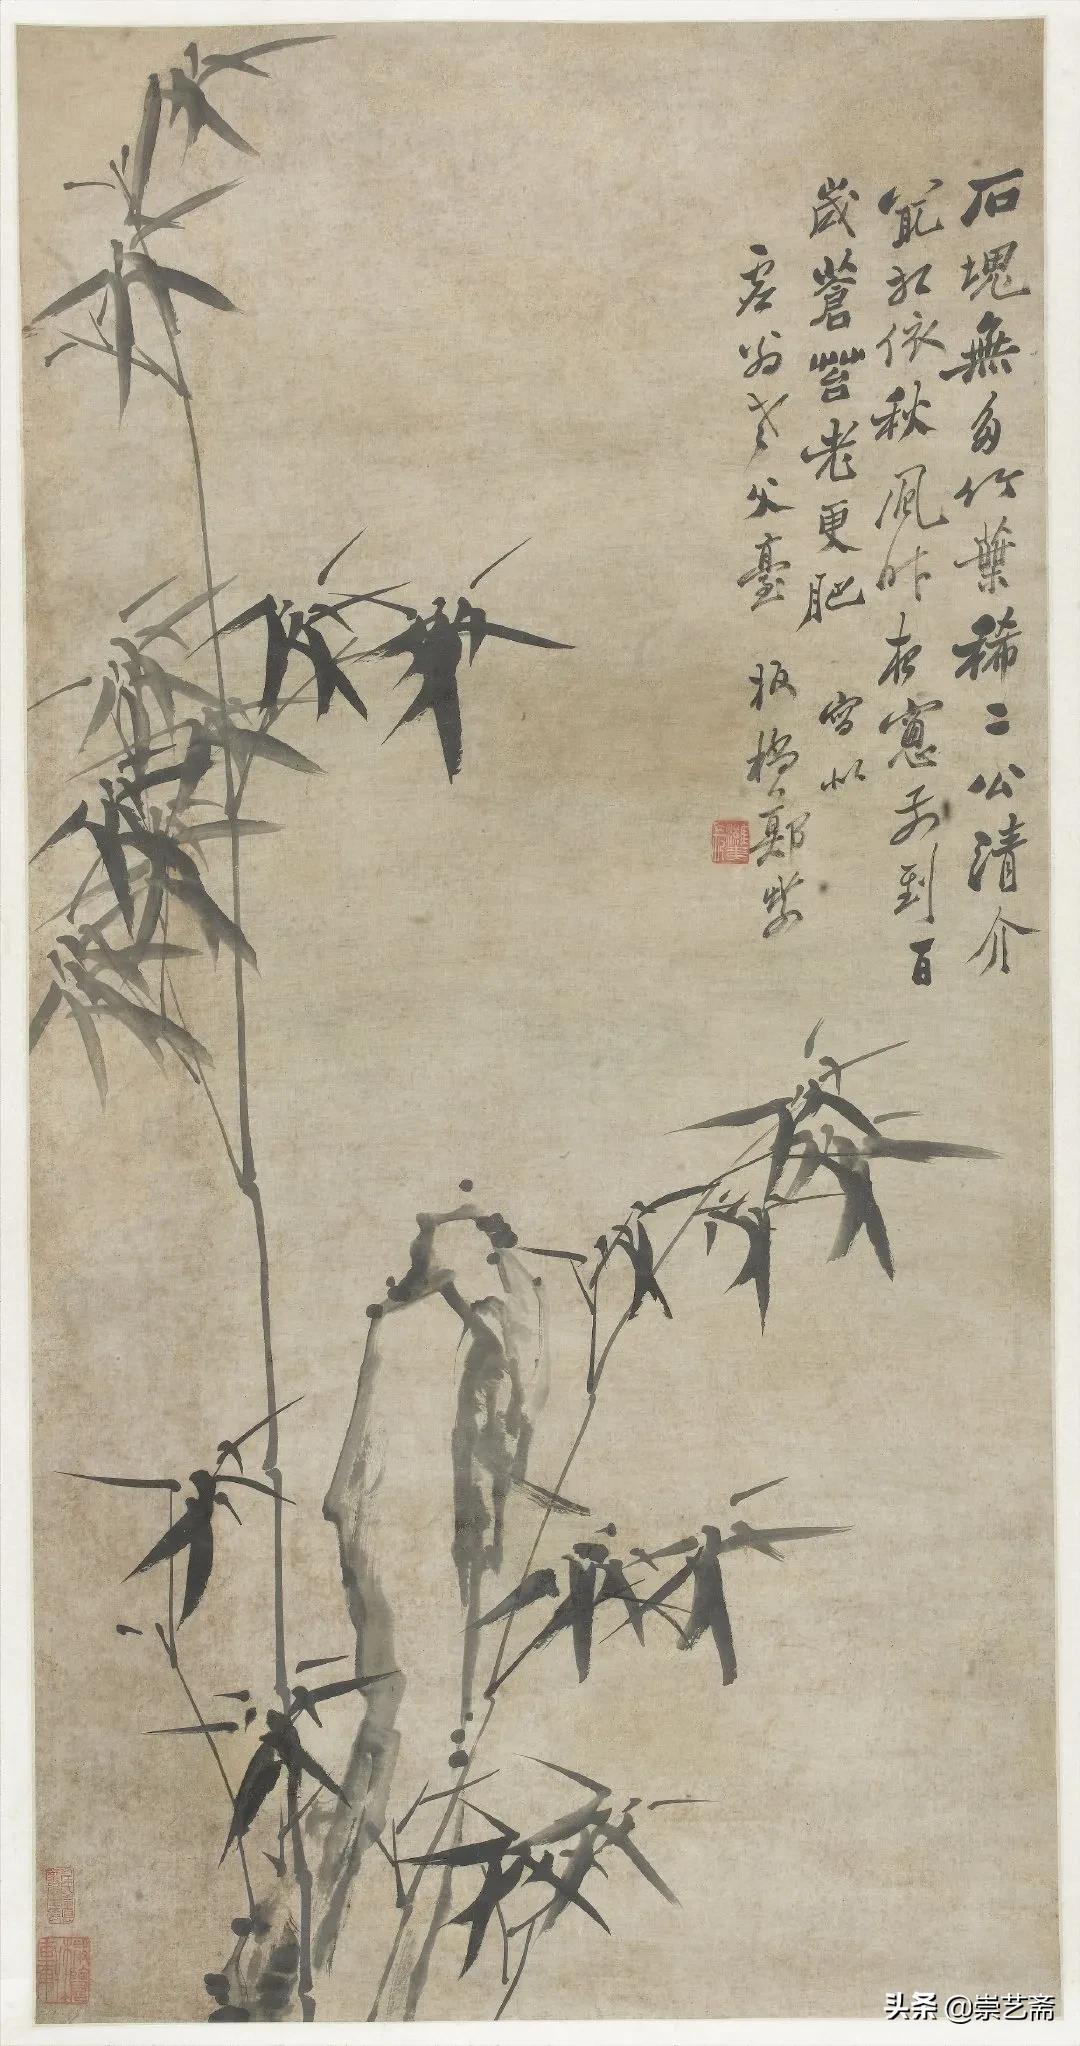 石塊無多竹葉稀二公清介
能相依秋風昨夜窓前到百
歲蒼苔老更肥 寫似
虛翁老父臺 板橋鄭燮
头条 @崇艺斋